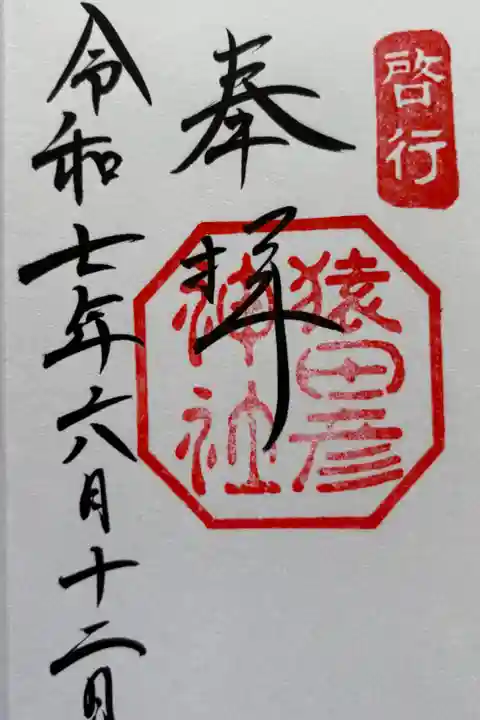 啓行
奉拝
猿田彦
神社
令和七年六月十二日